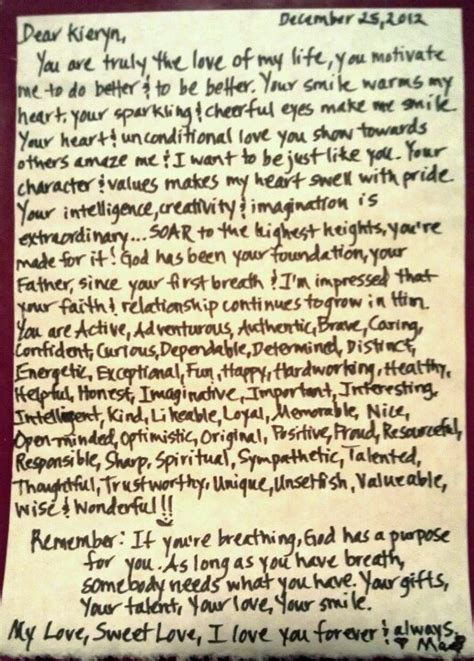 December 25, 2012
Dear Kieryn,
You are truly the love of my life, you motivate
me to do better & to be better. Your smile warms my
heart, your sparkling & cheerful eyes make me smile
Your heart & unconditional love you show towards
others amaze me & I want to be just like you. Your
character & values makes my heart swell with pride.
Your intelligence, creativity & imagination is
extraordinary... SOAR to the highest heights, you're
made for it! God has been your foundation, your
Father, since your first breath & I'm impressed that
your faith & relationship continues to grow in Him.
You are Active, Adventurous, Authentic, Brave, Caring,
Confident, Curious, Dependable, Determined, Distinct,
Energetic, Exceptional, Fun, Happy, Hardworking, Healthy,
Helpful, Honest, Imaginative, Important, Interesting,
Intelligent, Kind, Likeable, Loyal, Memorable, Nice,
Open-minded, Optimistic, Original, Positive, Proud, Resourceful,
Responsible, Sharp, Spiritual, Sympathetic, Talented,
Thoughtful, Trustworthy, Unique, Unselfish, Valueable,
Wise & Wonderful!!
Remember: If you're breathing, God has a purpose
for you. As long as you have breath,
somebody needs what you have. Your gifts,
Your talent, Your love, Your smile.
My Love, Sweet Love, I love you forever & always,